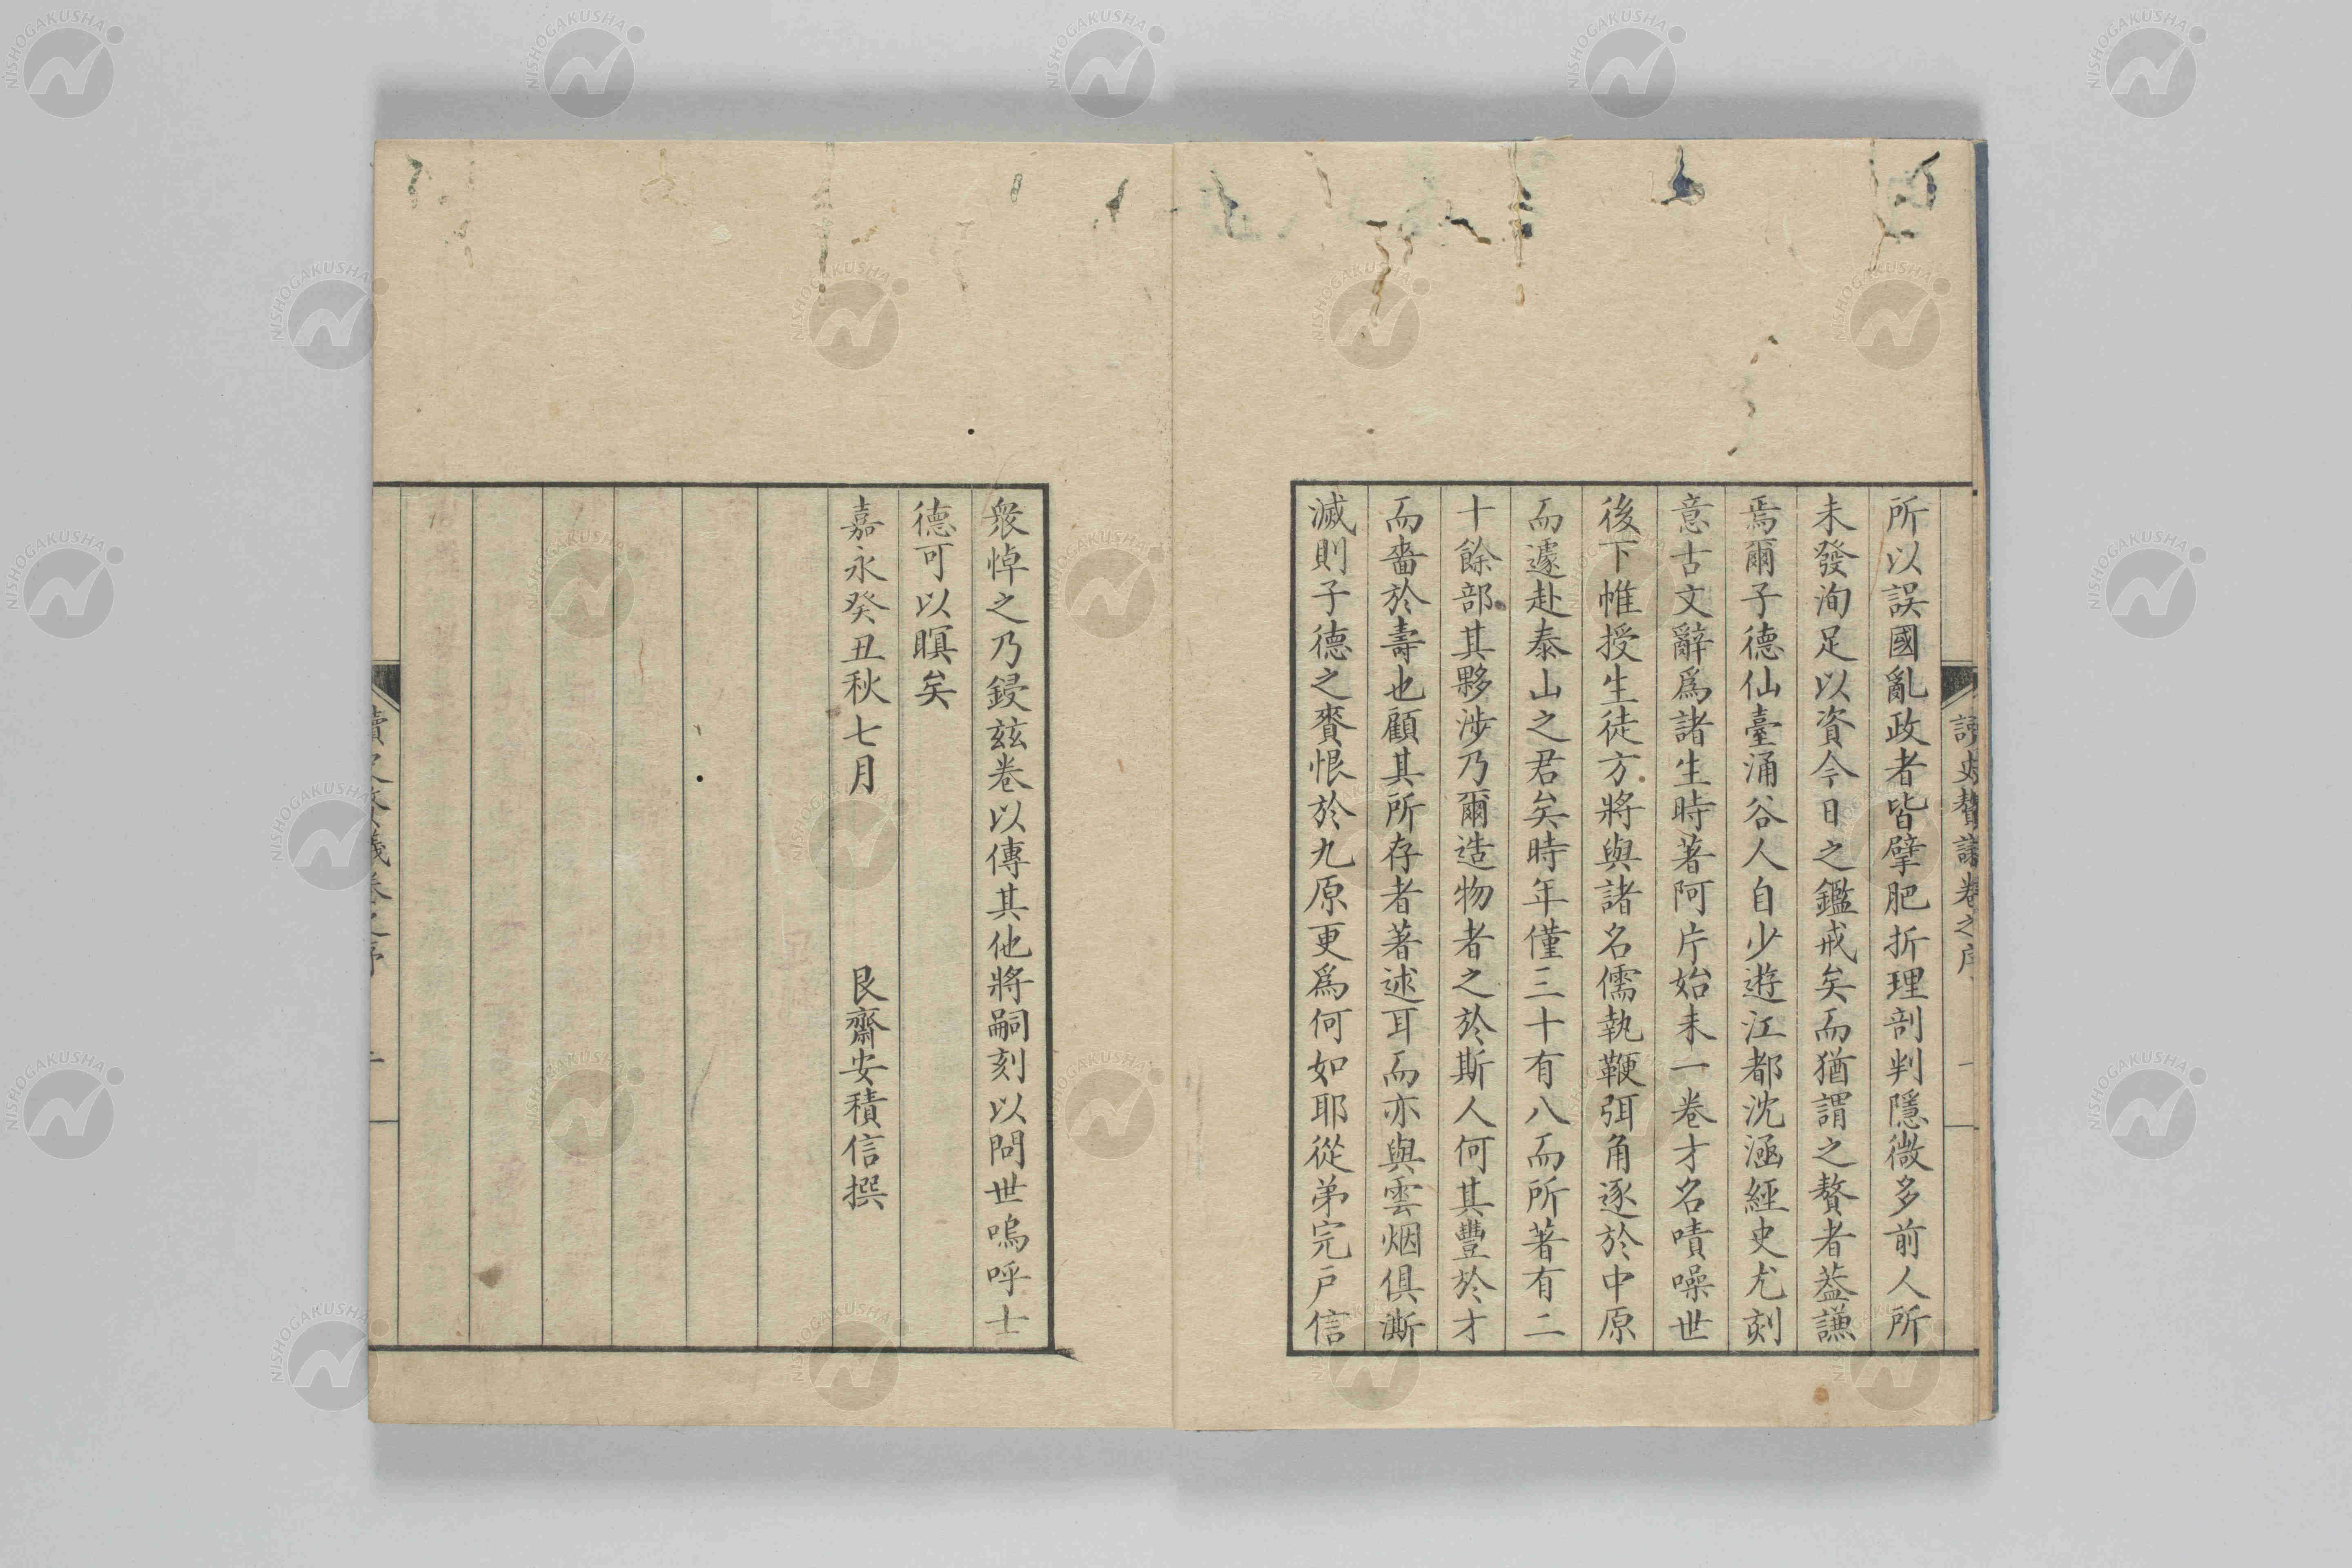 所以誤國亂政者皆擘肥折理剖判隱微多前人所
未發洵足以資今日之鑑戒矣而猶謂之贅者葢謙
焉爾子德仙臺涌谷人自少遊江都沈涵經史尤刻
意古文辭爲諸生時著阿片始末一卷才名嘖噪世
後下帷授生徒方將與諸名儒執鞭弭角逐於中原
而遽赴泰山之君矣時年僅三十有八而所著有二
十餘部其夥涉乃爾造物者之於斯人何其豐於才
而嗇於壽也顧其所存者著述耳而亦與雲烟俱澌
滅則子德之賫恨於九原更爲何如耶從弟完戶信
衆悼之乃鋟茲卷以傳其他將嗣刻以問世嗚呼士
德可以瞑矣
嘉永癸丑秋七月 艮齋安積信撰
讀史贅議卷之序
NISHOGAKUSHA